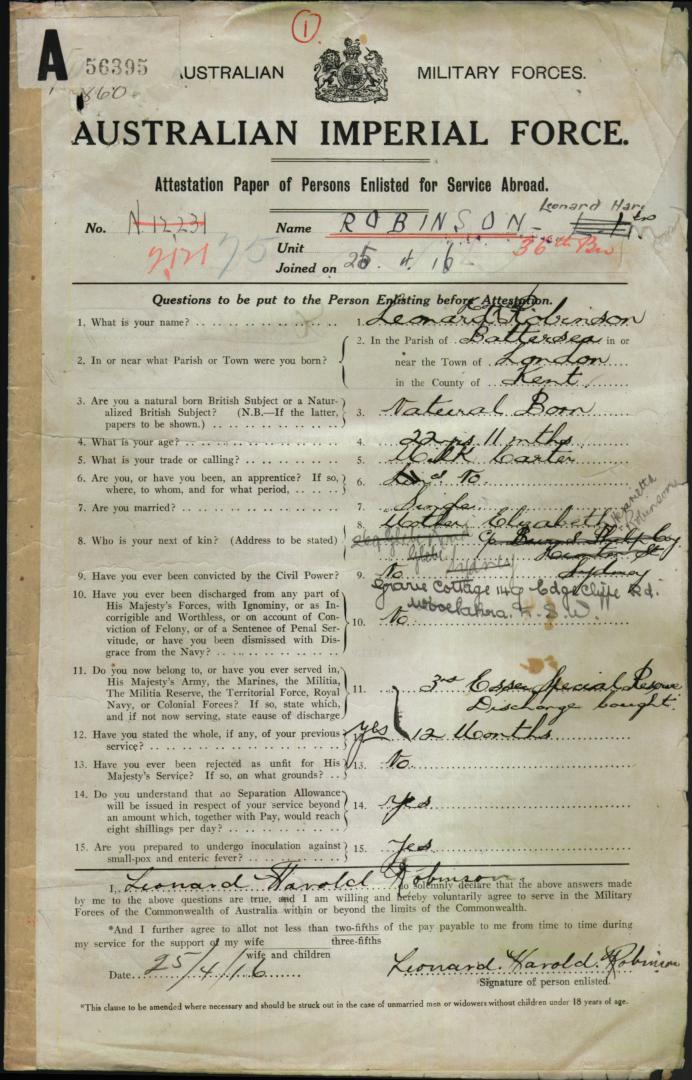 1
A 56395
AUSTRALIAN MILITARY FORCES.
860
AUSTRALIAN IMPERIAL FORCE.
Attestation Paper of Persons Enlisted for Service Abroad.
Leonard Har
No. N 12231 Name ROBINSON
2121 75 Unit 36th Bn
Joined on 25 4 16
Questions to be put to the Person Enlisting before Attestation.
1. What is your name? 1. Leonard H Robinson
2. In or near what Parish or Town were you born? 2. In the Parish of Battersea in or
near the Town of London
in the County of Kent
3. Are you a natural born British Subject or a Natur-
alized British Subject? (N.B.—If the latter,
papers to be shown.) 3. Natural Born
4. What is your age? 4. 22 yrs 11 mths
5. What is your trade or calling? 5. Milk Carter
6. Are you, or have you been, an apprentice? If so,
where, to whom, and for what period, 6. No
7. Are you married? 7. Single
8. Who is your next of kin? (Address to be stated) 8. Mother Elizabeth Robinson
Glebe Sydney
c/o Hunter St
Sydney
9. Have you ever been convicted by the Civil Power? 9. No
Cottage 149 Edgecliffe Rd.
Woollahra. N.S.W.
10. Have you ever been discharged from any part of
His Majesty's Forces, with Ignominy, or as In-
corrigible and Worthless, or on account of Con-
viction of Felony, or of a Sentence of Penal Ser-
vitude, or have you been dismissed with Dis-
grace from the Navy? 10. No
11. Do you now belong to, or have you ever served in,
His Majesty's Army, the Marines, the Militia,
The Militia Reserve, the Territorial Force, Royal
Navy, or Colonial Forces? If so, state which,
and if not now serving, state cause of discharge 11. 3rd Essex Special Reserve
Discharge bought.
12. Have you stated the whole, if any, of your previous
service? yes 12 Months
13. Have you ever been rejected as unfit for His
Majesty's Service? If so, on what grounds? 13. No
14. Do you understand that no Separation Allowance
will be issued in respect of your service beyond
an amount which, together with Pay, would reach
eight shillings per day? 14. yes
15. Are you prepared to undergo inoculation against
small-pox and enteric fever? 15. Yes
I, Leonard Harold Robinson do solemnly declare that the above answers made
by me to the above questions are true, and I am willing and hereby voluntarily agree to serve in the Military
Forces of the Commonwealth of Australia within or beyond the limits of the Commonwealth.
*And I further agree to allot not less than two-fifths of the pay payable to me from time to time during
three-fifths
my service for the support of my wife
wife and children
Date 25/4/16 Leonard. Harold. Robinson
Signature of person enlisted.
*This clause to be amended where necessary and should be struck out in the case of unmarried men or widowers without children under 18 years of age.